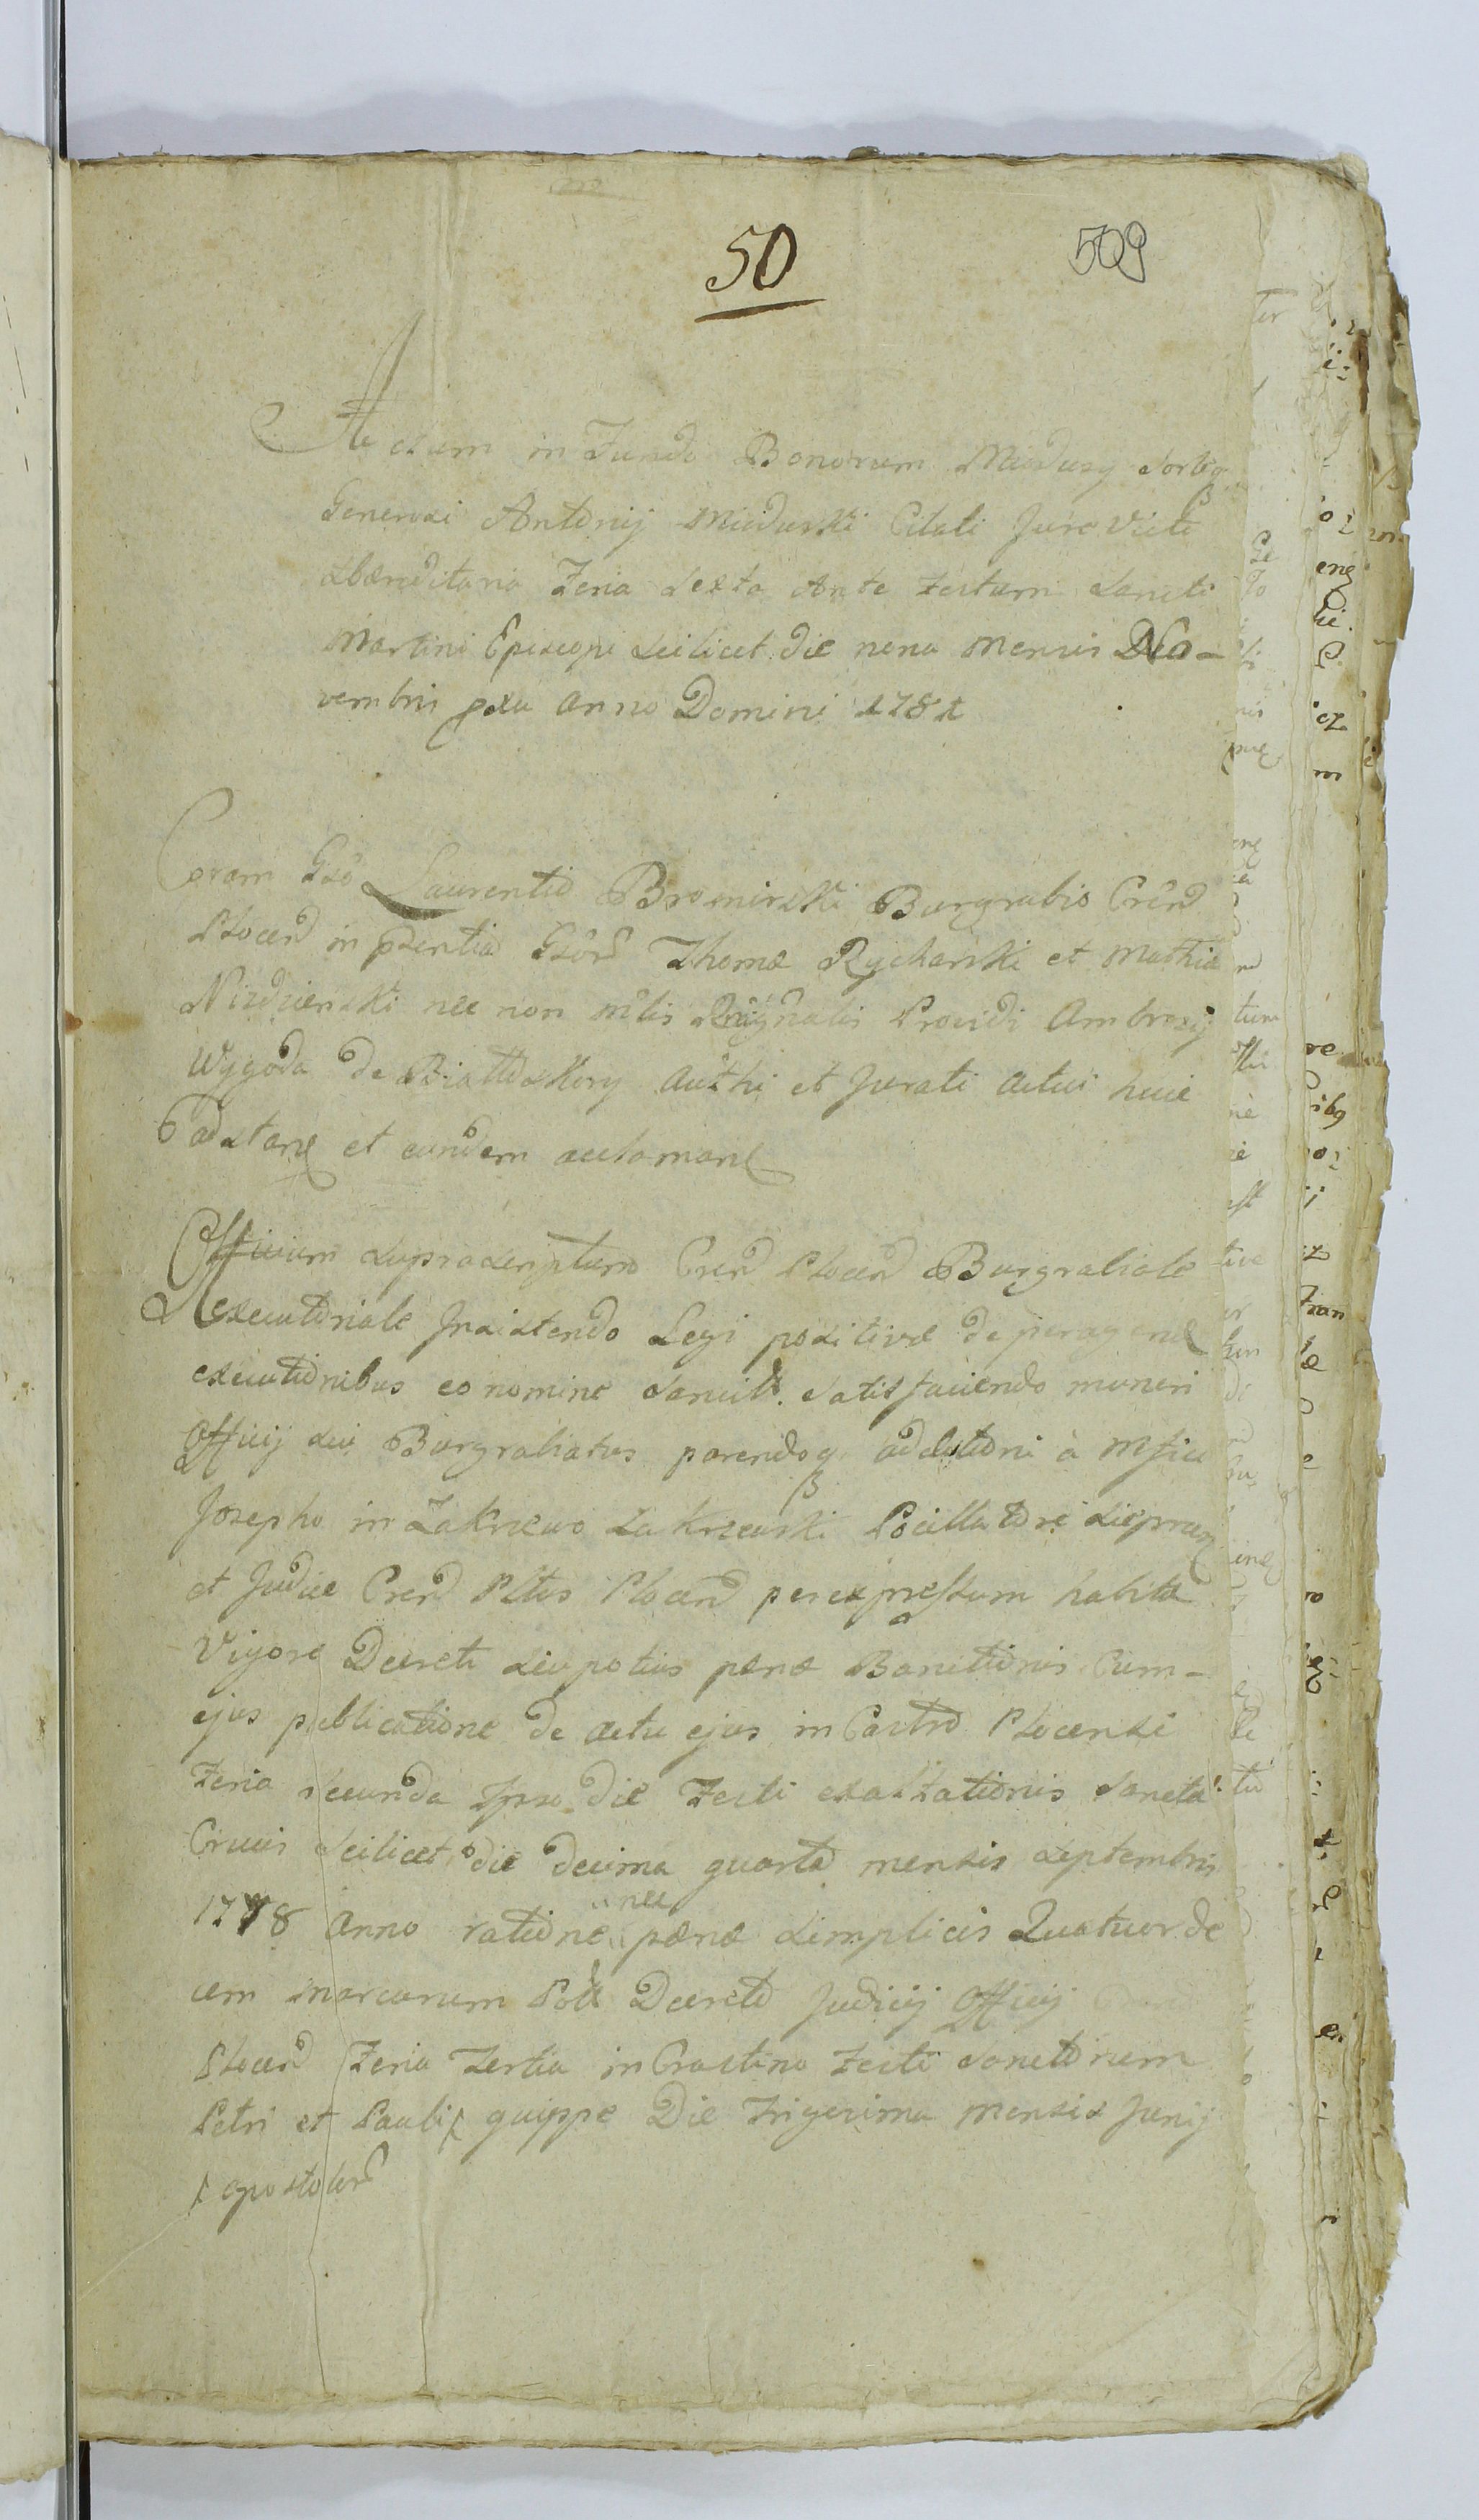 50
509
Actum in Fundo Bonorum Miodusy
Generosi Antonij Mioduski Citati Jure Victi
Hæreditaria Feria Sexta Ante Festum Sancti
Martini Episcopi Scilicet die nona Mensis No-
vembris pxa Anno Domini 1781
Coram Gso Laurentio Bromirski Burgrabio Crên
Plocen in pSentia Gsôr Thomæ Rycharski et Mathiæ
Niedzienski nec non mlis Providi Ambrosij
Wygoda de Białłoskory Authi et Jurati Actui huic
adstan et eundem acclaman
Officium Suprascriptum Cren Plocen Burgrabiale
Executoriale Insistendo Legi positivæ de peragen
executionibus eo nomine Sancit. Satisfaciendo muneri
Officij Sui Burgrabiatus parendoq adcitationi à Mfico
Josepho in Zakrzewo Zakrzewski Pocillatore Sieprcen
et Judice Cren Pltus Plocen per expressum habitæ
Vigore Decreti Seu potius pænæ Banitionis Cum-
ejus publicatione de actu ejus in Castro Plocensi
Feria Secunda Ipso die Festi exaltationis Sanctæ
Crucis Scilicet die decima quarta mensis Septembris
1778 Anno ratione nee pænæ Simplicis Quatuor de
cem Marcarum Poll Decreto Judicij Officij
Plocen Feria Tertia in Crastino Festi Sanctorum
Petri et Pauli quippe Die Trigesima Mensis Junij
apostolor